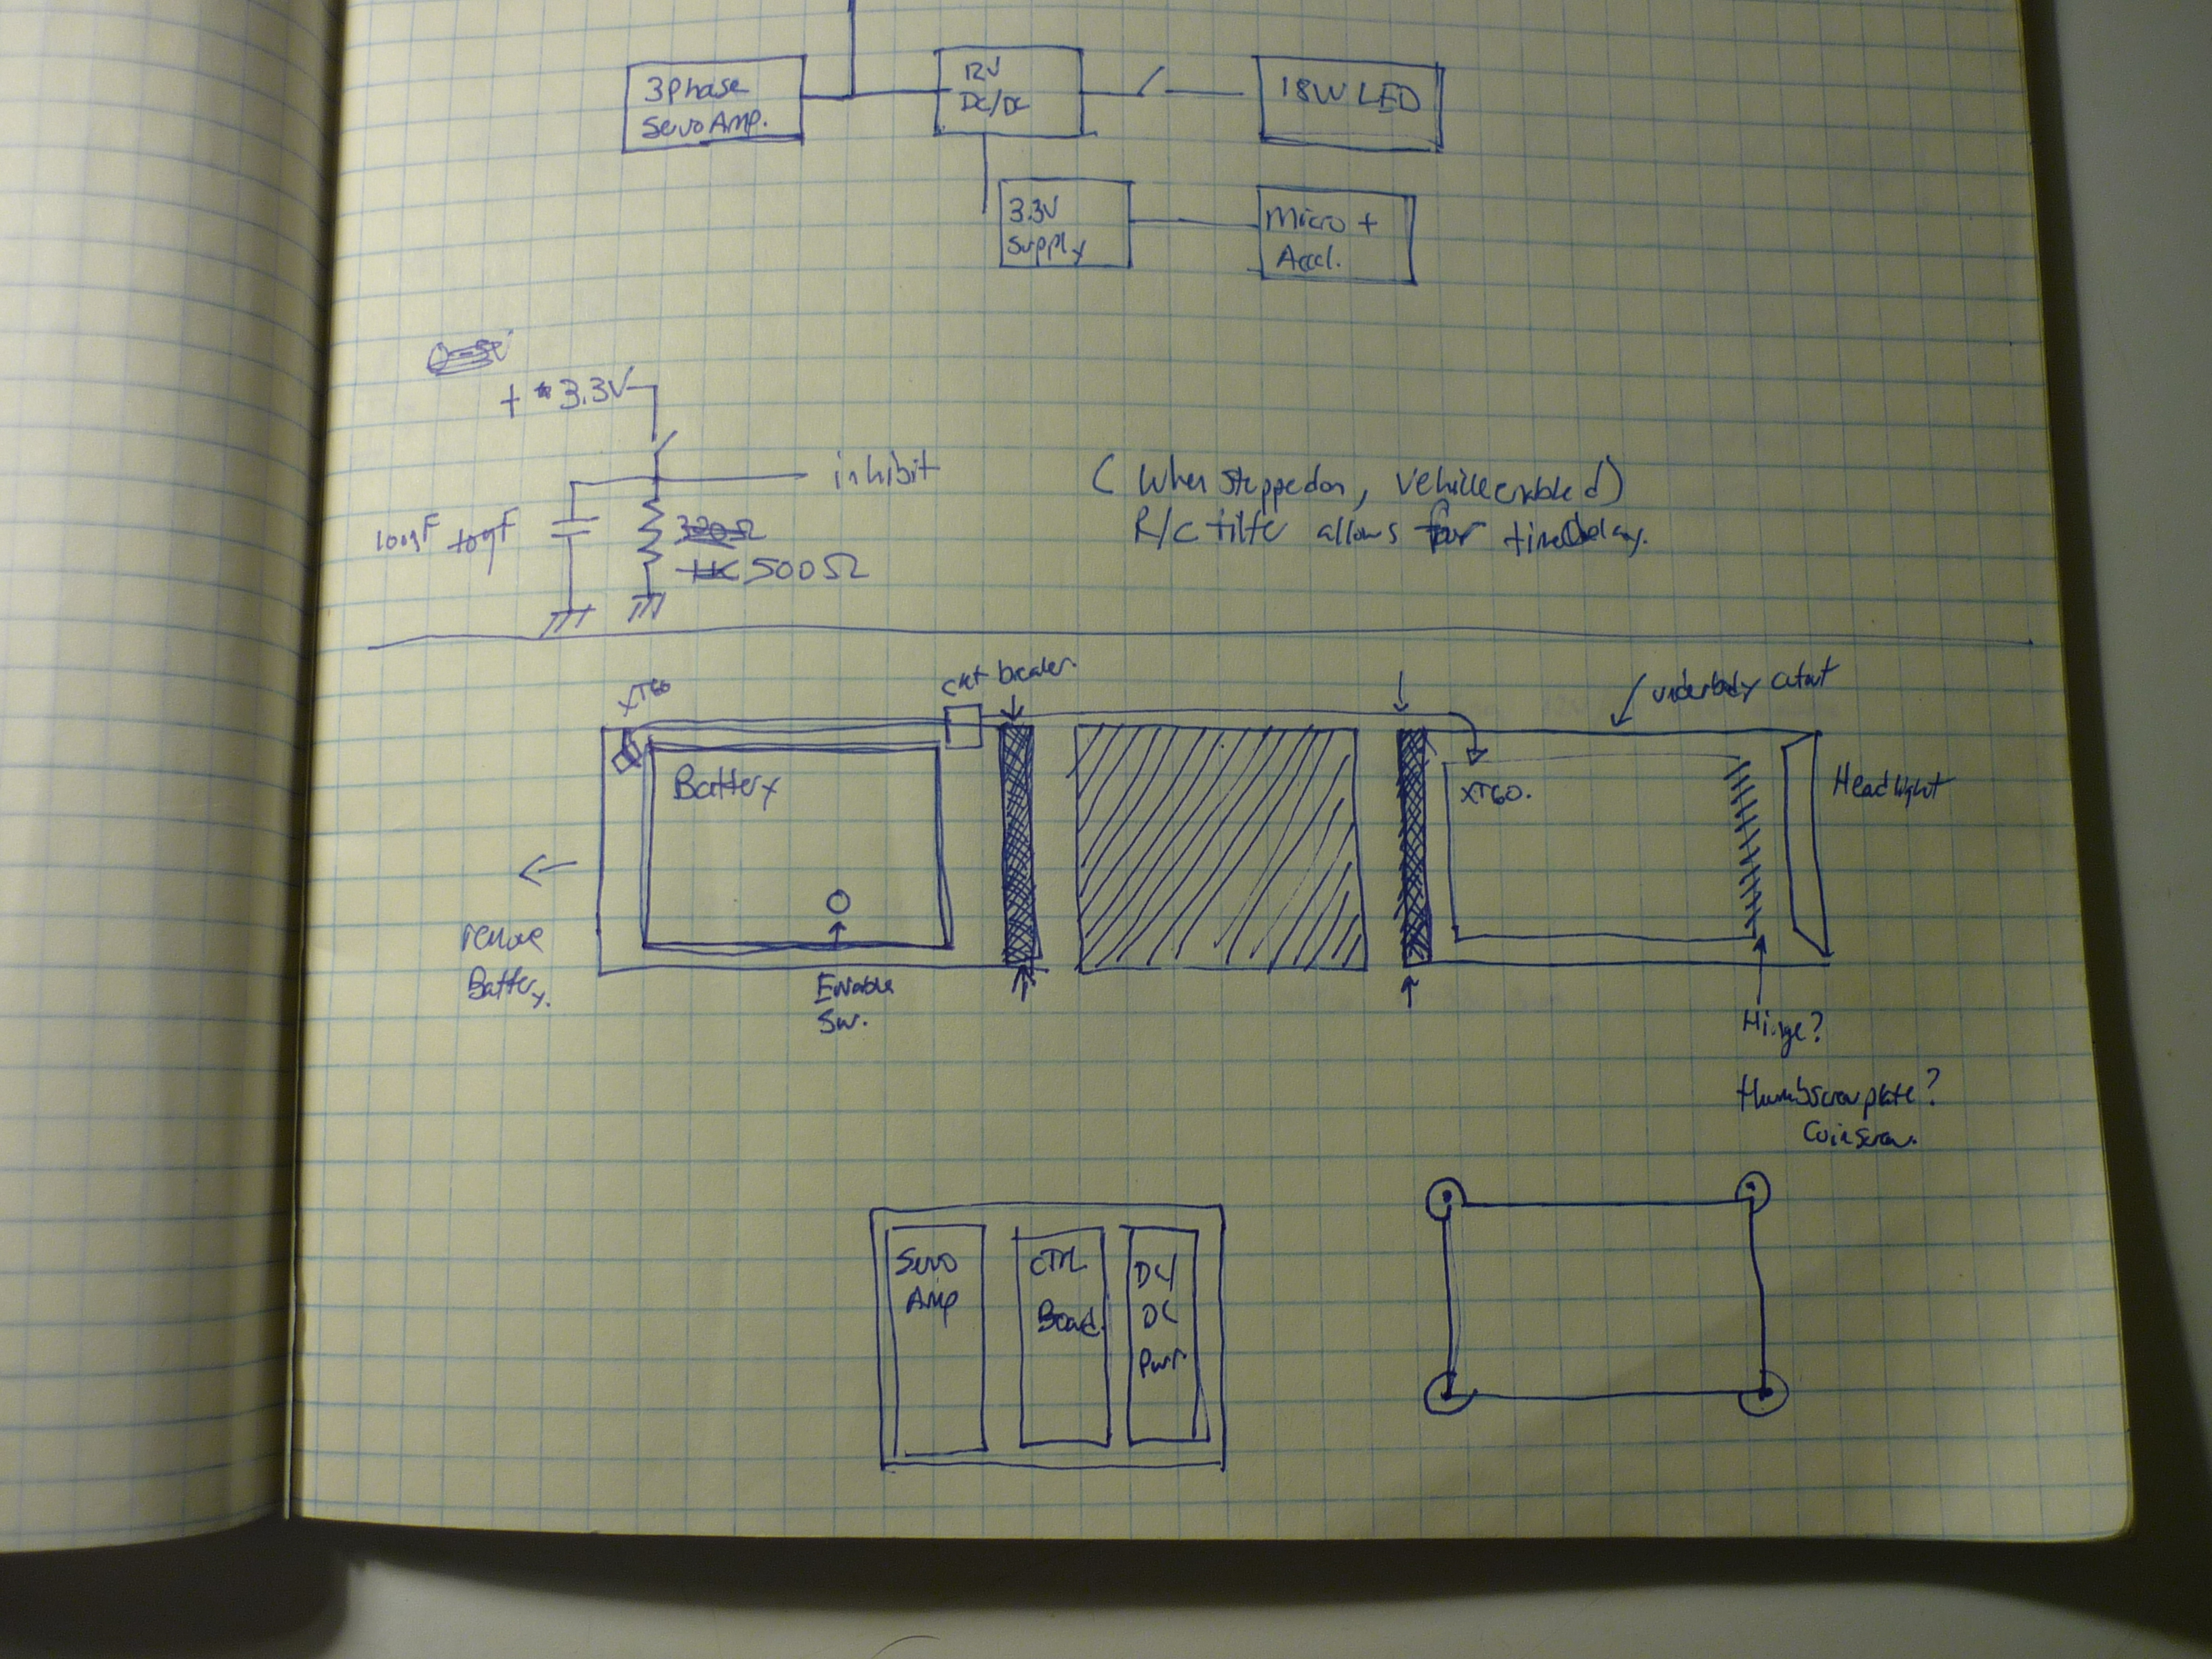 3phase
Servo Amp.
12V
DC/DC
18W LED
3.3V
Supply
Micro +
Accel.
+ 3.3V
inhibit
500Ω
(When stepped on, vehicle enabled)
R/C filter allows for time delay.
XT60
ckt breaker.
underbody cutout
Battery
XT60.
Headlight
remove
Battery.
Enable
Sw.
Hinge?
thumbscrew plate?
Coin screw.
Servo
Amp
CTRL
Board.
DC/
DC
Pwr